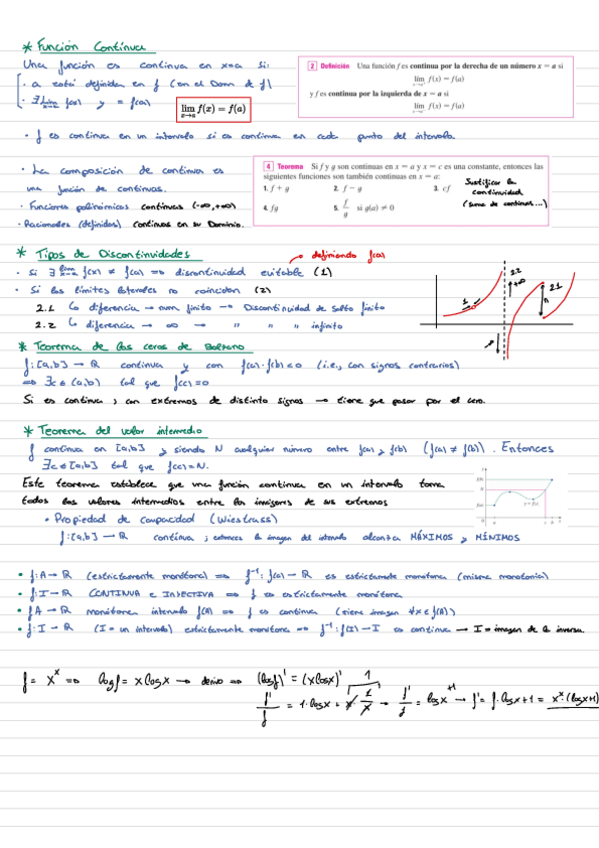 * Función Continua
Una función es continua en x=a si:
· a está definida en f (en el Dom de f)
· ∃ lim x→a f(x) y = f(a)
lim x→a f(x) = f(a)
2 Definición Una función f es continua por la derecha de un número x = a si
lim f(x) = f(a)
y f es continua por la izquierda de x = a si
lim f(x) = f(a)
· f es continua en un intervalo si es continua en cada punto del intervalo.
· La composición de continuas es
una función de continuas.
· Funciones polinómicas continuas (-∞,+∞)
· Racionales (definidas) continuas en su Dominio.
4 Teorema Si f y g son continuas en x = a y x = c es una constante, entonces las
siguientes funciones son también continuas en x = a:
1. f + g 2. f − g 3. cf
4. fg 5. f/g si g(a) ≠ 0
Justificar la
continuidad
(suma de continuas...)
* Tipos de Discontinuidades
definiendo f(a)
· Si ∃ lim f(x) ≠ f(a) ⇒ discontinuidad evitable (1)
· Si los límites laterales no coinciden (2)
2.1 ↳ diferencia → num finito → Discontinuidad de Salto finito
2.2 ↳ diferencia → ∞ → " " " infinito
1 2.2 +∞ 2.1 n
* Teorema de los ceros de Bolzano
f: [a,b] → ℝ continua y con f(a)·f(b)<0 (i.e., con signos contrarios)
⇒ ∃c ∈ (a,b) tal que f(c)=0
Si es continua y con extremos de distinto signos → tiene que pasar por el cero.
* Teorema del valor intermedio
f continua en [a,b] y siendo N cualquier número entre f(a) y f(b) (f(a) ≠ f(b)). Entonces
∃c ∈ [a,b] tal que f(c)=N.
Este teorema establece que una función continua en un intervalo toma
todos los valores intermedios entre las imágenes de sus extremos
y = f(x)
· Propiedad de compacidad (Wiestrass)
f: [a,b] → ℝ continua, entonces la imagen del intervalo alcanza MÁXIMOS y MÍNIMOS
· f: A → ℝ (estrictamente monótona) ⇒ f⁻¹: f(A) → ℝ es estrictamente monotona (misma monotonía)
· f: I → ℝ CONTINUA e INYECTIVA ⇒ f es estrictamente monótona
· f A → ℝ monótona intervalo f(A) ⇒ f es continua (tiene imagen ∀x ∈ f(A))
· f: I → ℝ (I = un intervalo) estrictamente monotona ⇒ f⁻¹: f(I) → I es continua → I = imagen de la inversa.
f = xˣ ⇒ log f = x log x → derivo ⇒ (log f)' = (x log x)'
f'/f = 1·log x + x·1/x → f'/f = log x +1 → f' = f·log x+1 = xˣ·(log x+1)